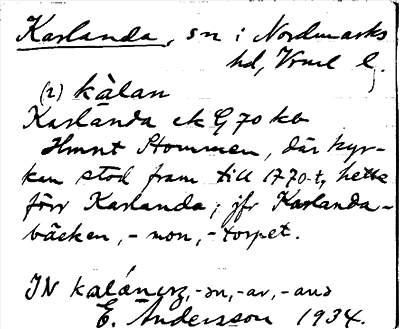 Karlanda, sn i Nordmarks
hd, Vrml l.
(2) kàlan
Karlanda ek G 70 kb
Hmnt Stommen, där kyr-
kan stod fram till 1770-t, hette
förr Karlanda; jfr Karlanda-
bäcken, -mon, -torpet.
IN kalánẹrz, -ən, -ar, -ans
E. Andersson 1934.